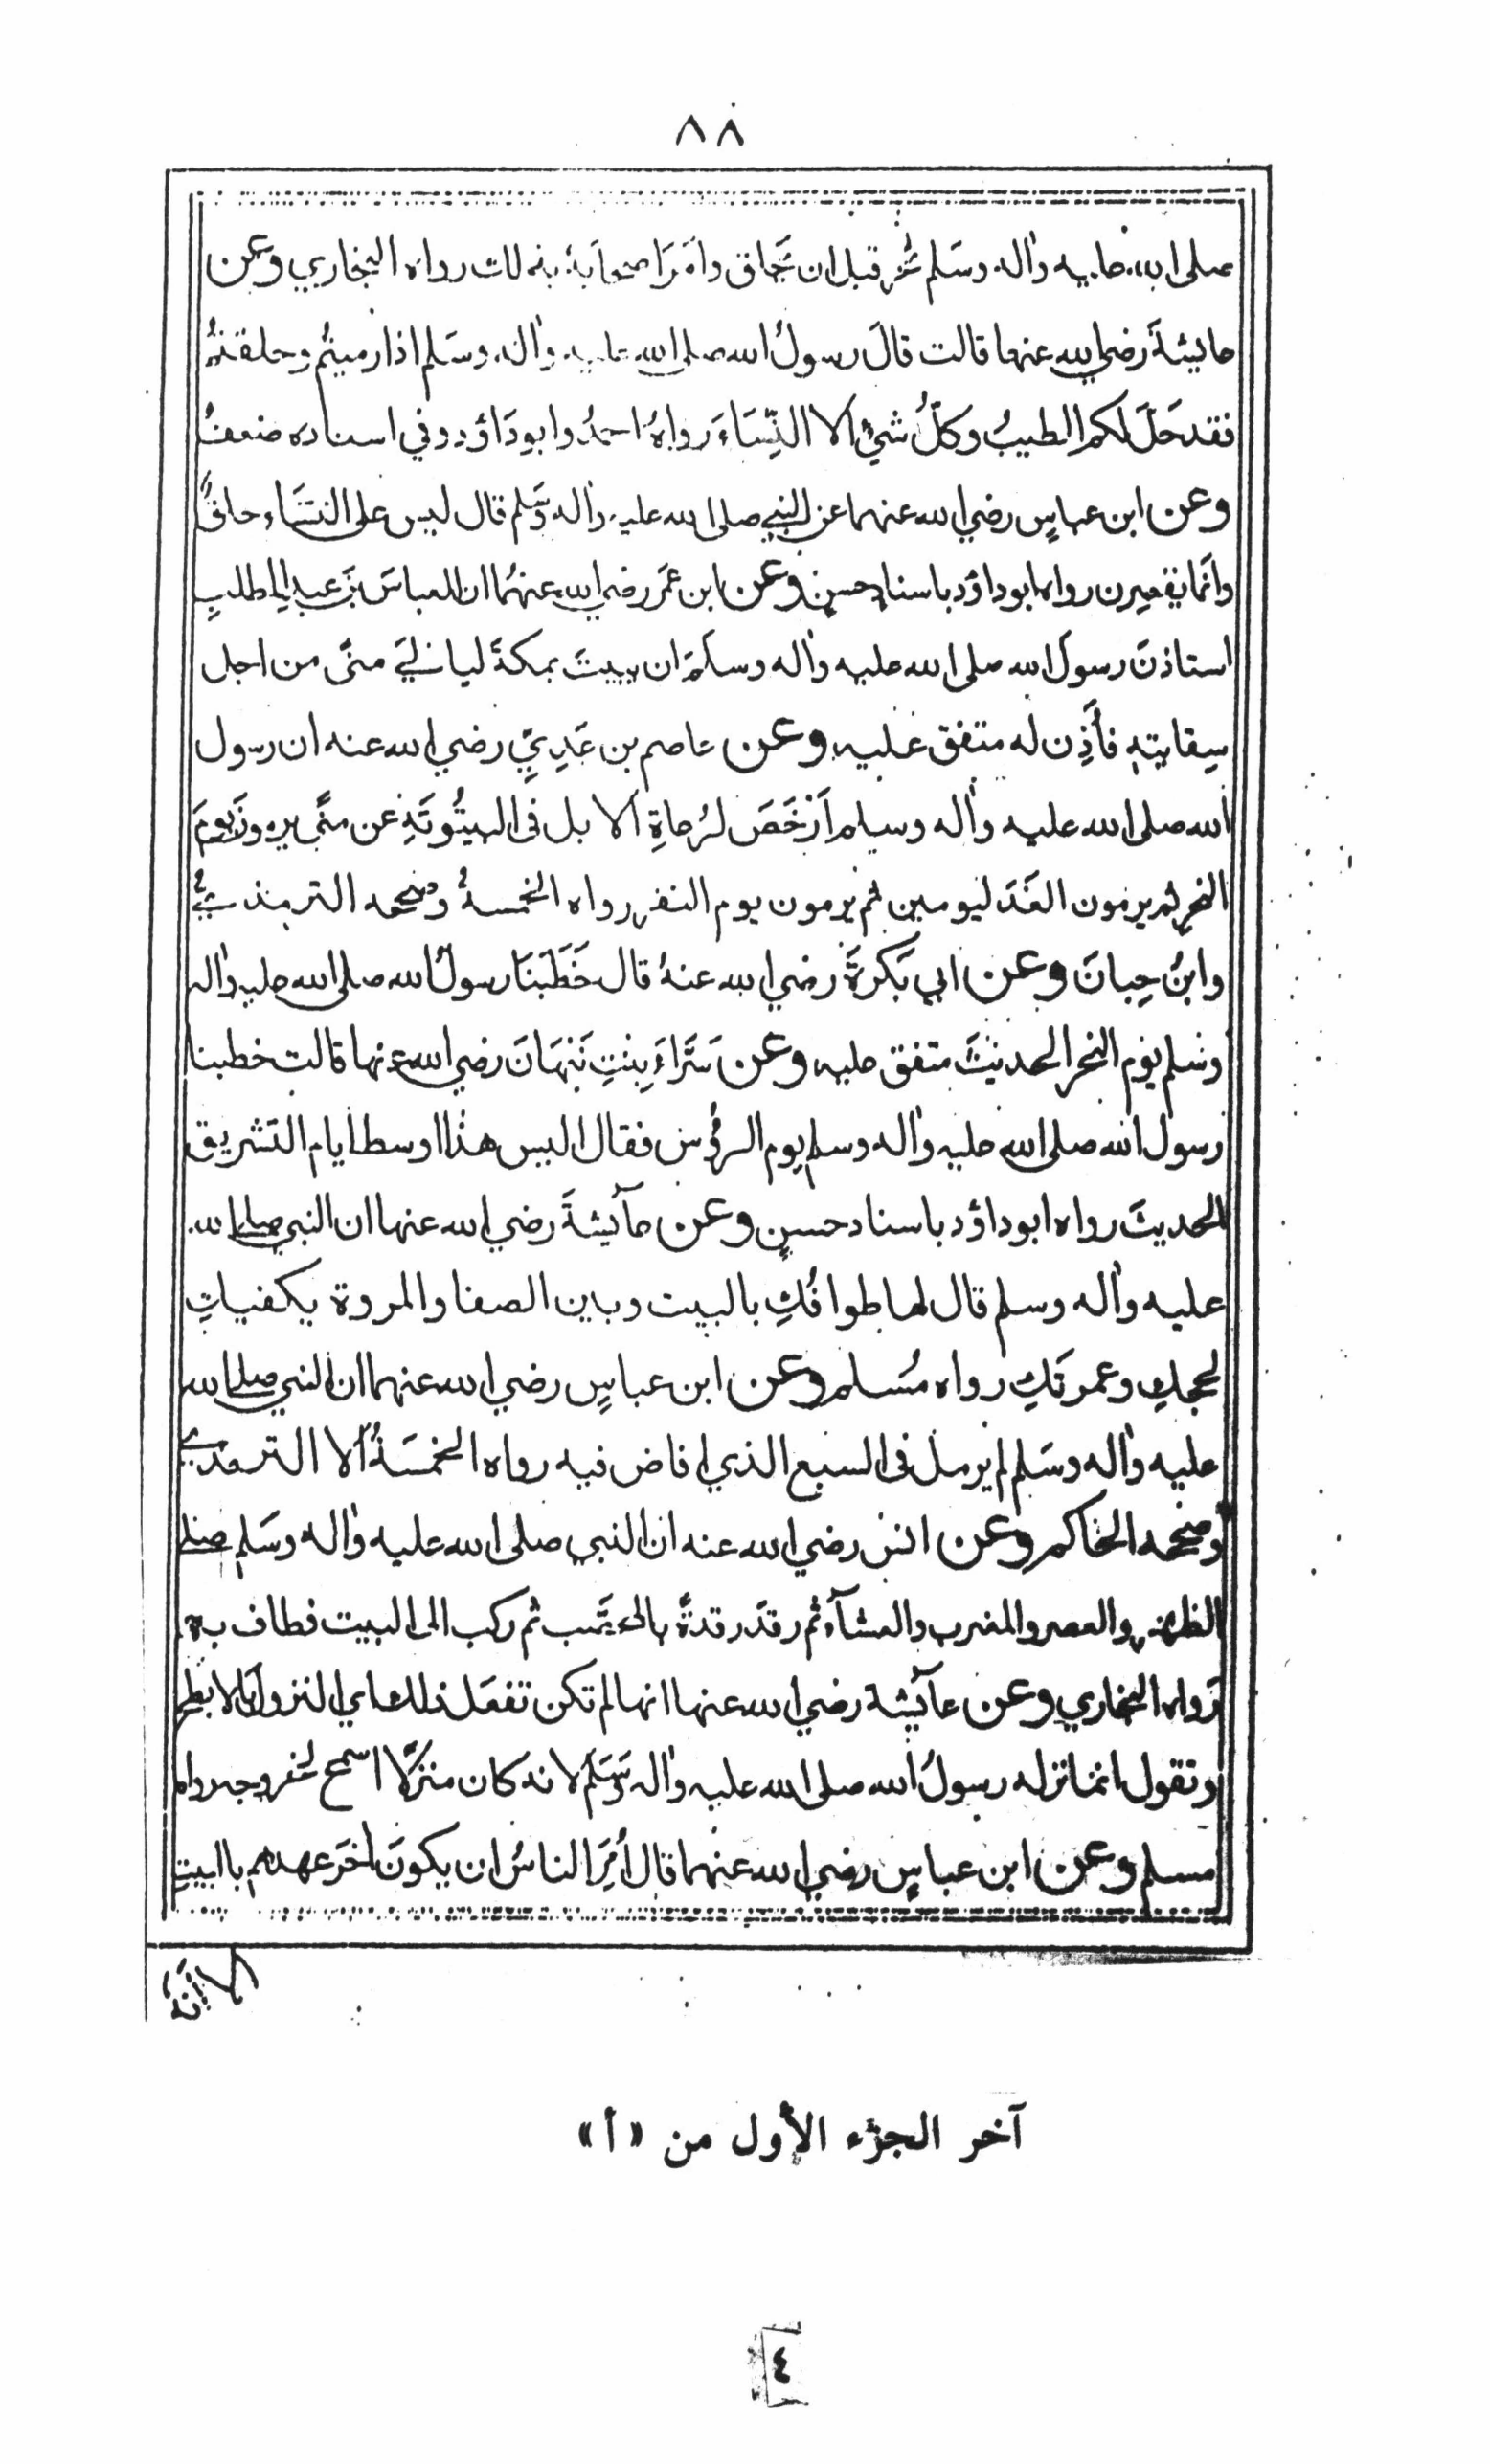 ٨٨
صلى الله عليه واٰله وسَلم نحر قبل ان يحَلق واَمَرَ اصحابَهُ بذلك رواه البخاري وعن
عايشةَ رضي الله عنها قالت قالَ رسولُ الله صلى الله عليه واٰله وسَلم اذا رميتُم وحلقتمُ
فقد حَلَّ لكم الطيبُ وكلُّ شيءٍ الا النِّسَاءَ رواهُ احمدُ وابوداؤد وفي اسناده ضعفٌ
وعن ابن عباسٍ رضي الله عنهما عن النبي صلى الله عليه واٰله وسَلم قال ليس على النسَاء حلقٌ
وانمَا يقصرن رواه ابوداؤد باسنادٍ حسنٍ وعن ابن عمَر رضي الله عنهُما ان العباسَ بنَ عبدِ المطلبِ
استاذنَ رسولَ الله صلى الله عليه واٰله وسلمَ ان يبيتَ بمكةَ ليالِيَ منىً من اجل
سِقايتهِ فأَذِن له متفق عليه وعن عاصم بن عَدِيٍّ رضي الله عنه ان رسول
الله صلى الله عليه واٰله وسلم اَرْخَصَ لرُعاةِ الابل فى البيتُوتَةِ عن منًى يرمونَ يومَ
النحر ثم يرمون الغَدَ ليومين ثم يرمون يوم النفر رواه الخمسةُ وصححه الترمذيُّ
وابنُ حِبانَ وعن ابي بَكرةَ رضي الله عنهُ قال خَطَبَنَا رسولُ الله صلى الله عليه واٰله
وسلم يوم النحر الحديثَ متفق عليه وعن سَرَّاءَ بِنتِ نَبْهَانَ رضي الله عنها قالت خطبنا
رسول الله صلى الله عليه واٰله وسلم يوم الرؤُس فقال اليس هذا اوسط ايام التشريق
الحديثَ رواه ابوداؤد باسناد حسنٍ وعن عاۤئشةَ رضي الله عنها ان النبي صلى الله
عليه واٰله وسلم قال لها طوافُكِ بالبيت وبين الصفا والمروة يكفيكِ
لحجكِ وعمرتكِ رواه مُسلم وعن ابن عباسٍ رضي الله عنهما ان النبي صلى الله
عليه واٰله وسَلم لم يرمل فى السبع الذي افاض فيه رواه الخمسَةُ الا الترمذي
وصححه الحاكم وعن انس رضي الله عنه ان النبي صلى الله عليه واٰله وسَلم صلى
الظهر والعصر والمغرب والعشآء ثم رقَد رقدةً بالمحَصب ثم ركب الى البيت فطاف به
رواه البخاري وعن عاۤئشة رضي الله عنها انها لم تكن تفعَل ذلك اي النزول بالابطح
وتقول انما نزله رسولُ الله صلى الله عليه واٰله وَسَلم لانه كان منزلًا اسمح لخروجه رواه
مسلم وعن ابن عباسٍ رضي الله عنهما قال اُمِرَ الناسُ ان يكونَ اٰخرَ عهدهم بالبيتِ
الا انه
آخر الجزء الأول من «أ»
٤